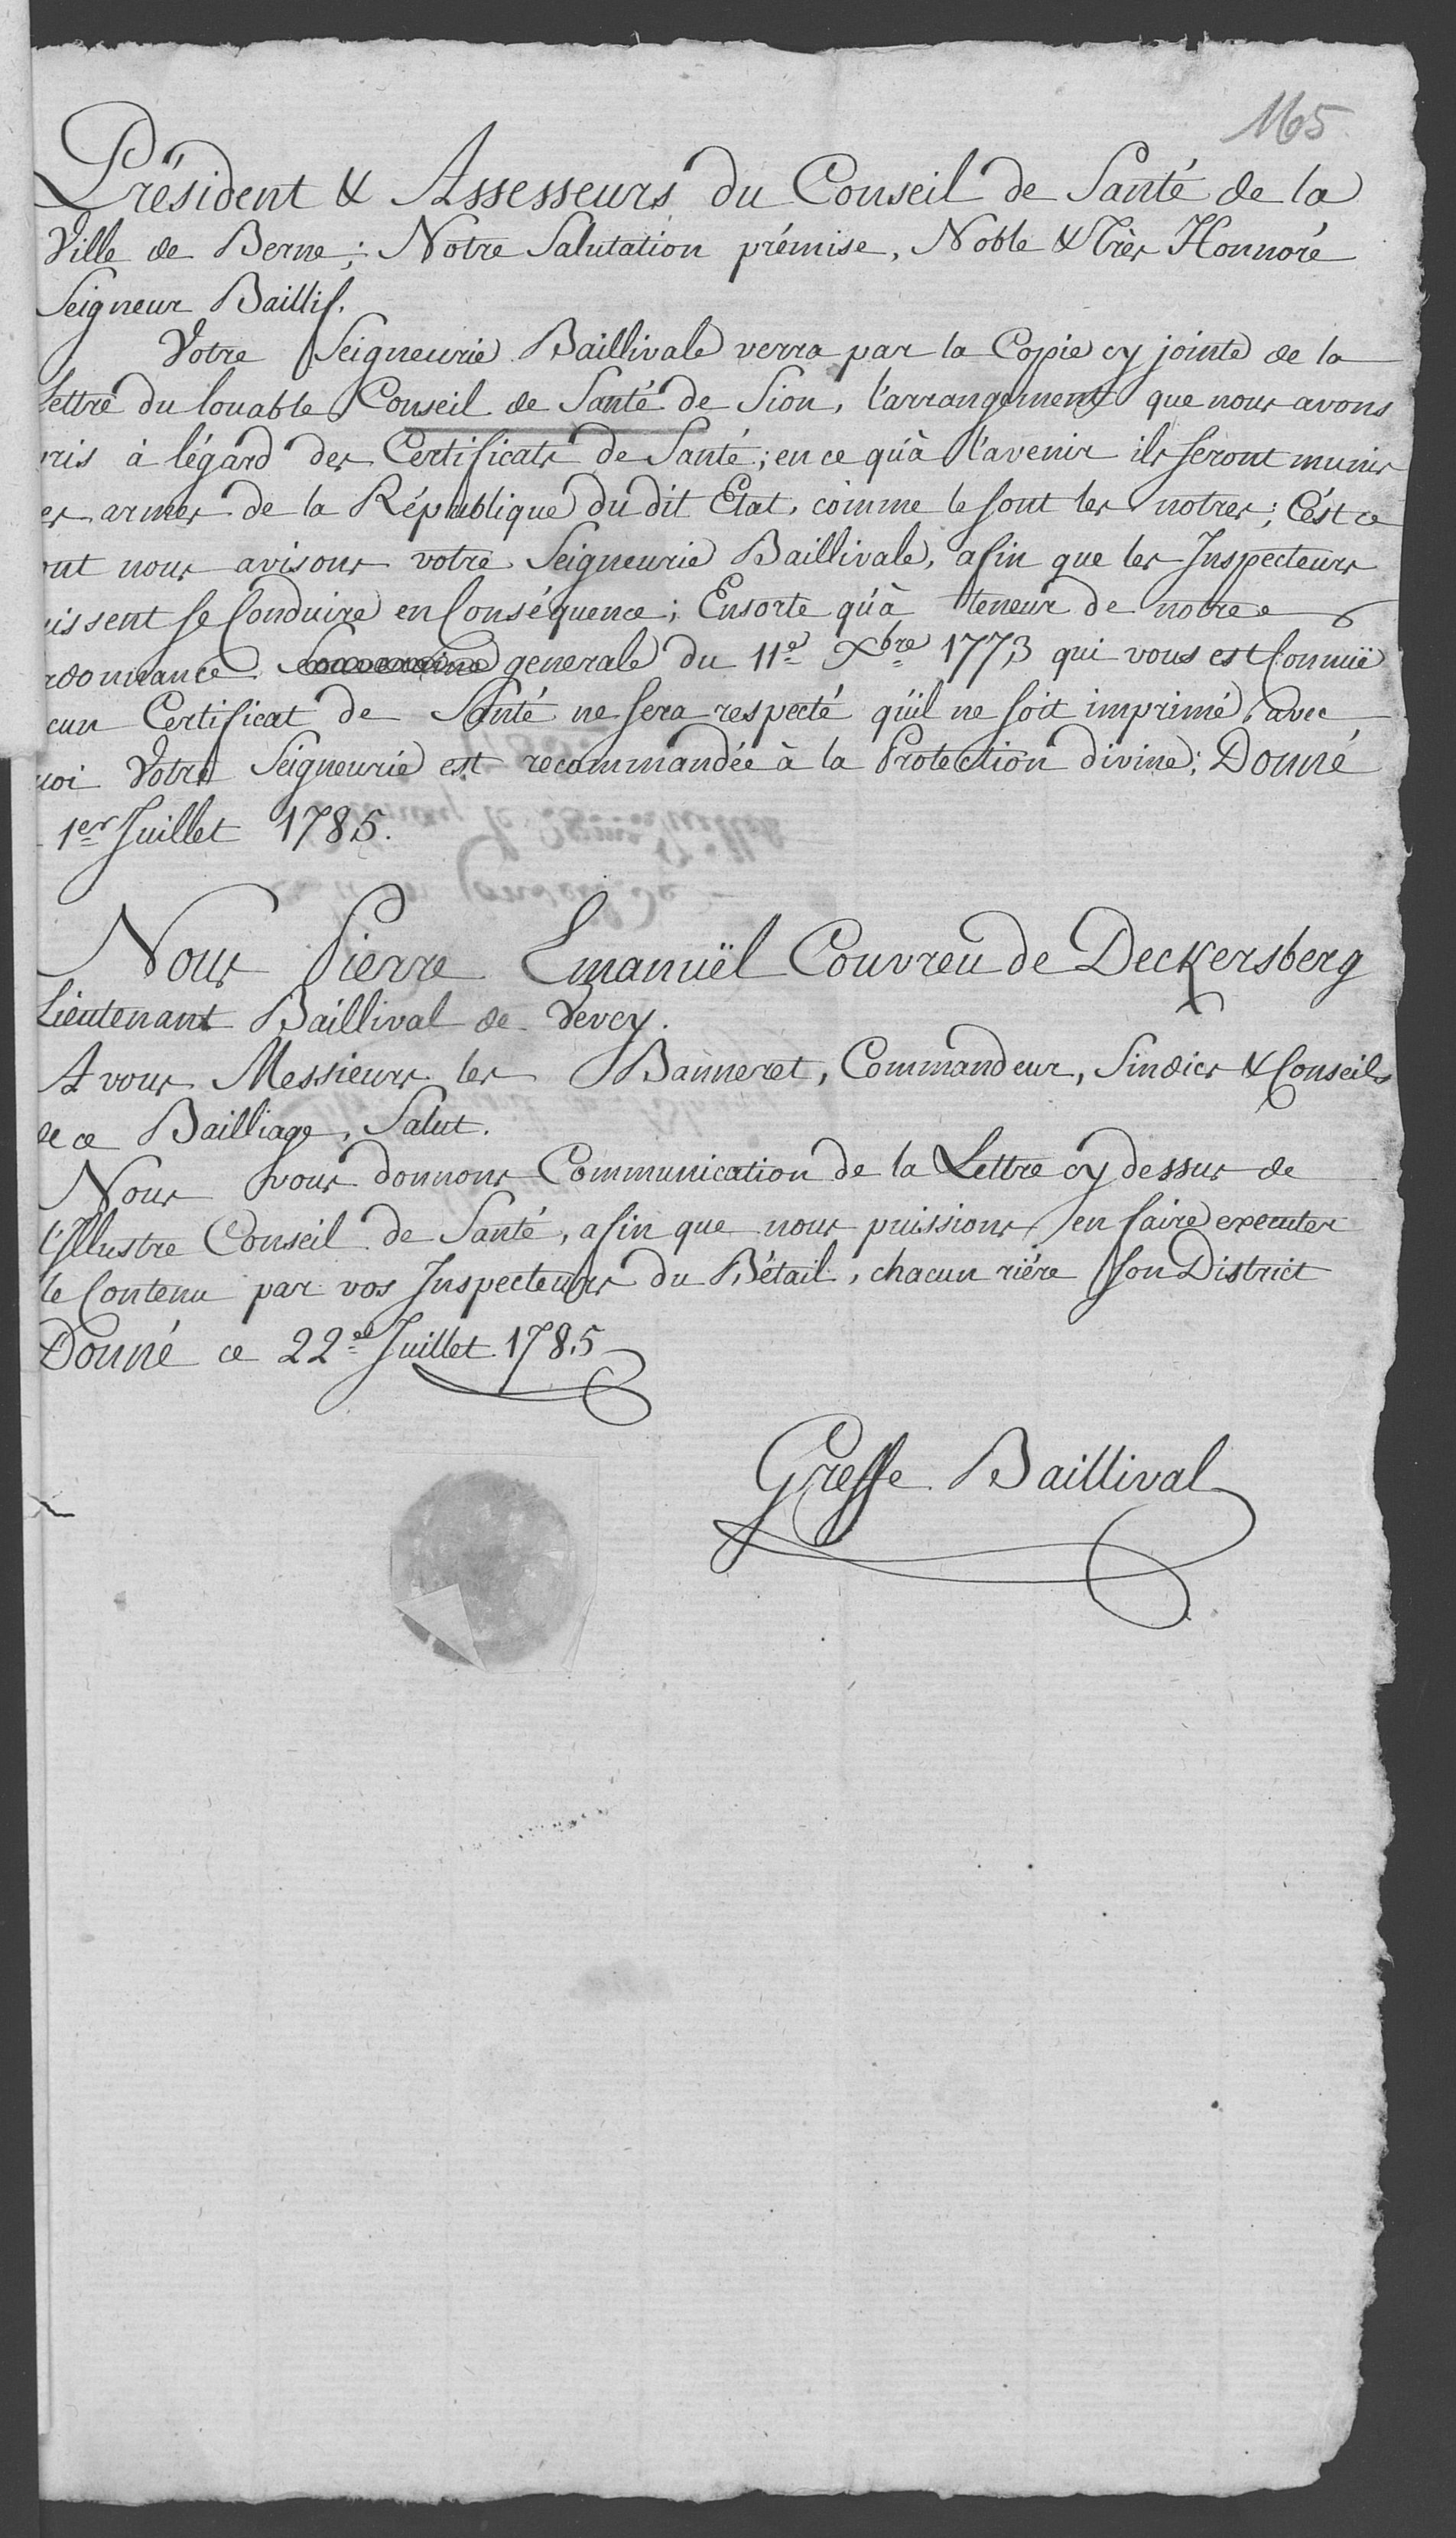 1165
Président & Assesseurs du Conseil de Santé de la
Ville de Berne; Notre Salutation prémise, Noble & Très Honnoré
Seigneur Baillif.
Votre Seigneurie Baillivale verra par la Copie cy jointe de la
Lettre du louable Conseil de Santé de Sion, l'arrangement que nous avons
ris à légard des Certificats de Santé; en ce qu'à l'avenir ils seront munis
es armes de la République du dit Etat, comme le sont les notres; C'est ce
ont nous avisons votre Seigneurie Baillivale, afin que les Inspecteurs
issent se Conduire en Conséquence; Ensorte qu'à teneur de notre
rdonnance generale du 11e Xbre 1773 qui vous est Connuë
cun Certificat de Santé ne sera respecté qu'il ne soit imprimé, avec
uoi Votre Seigneurie est recommandée à la Protection divine; Donné
1er Juillet 1785.
Nous Pierre Emanuël Couvreu de Deckersberg
Lieutenant Baillival de Vevey.
A vous Messieurs les Banneret, Commandeur, Sindics & Conseils
de ce Bailliage, Salut.
Nous vous donnons Communication de la Lettre cy dessus de
l'Illustre Conseil de Santé, afin que nous puissions en faire executer
le Contenu par vos Inspecteurs du Bétail, chacun riére son District
Donné ce 22e Juillet 1785
Greffe Baillival